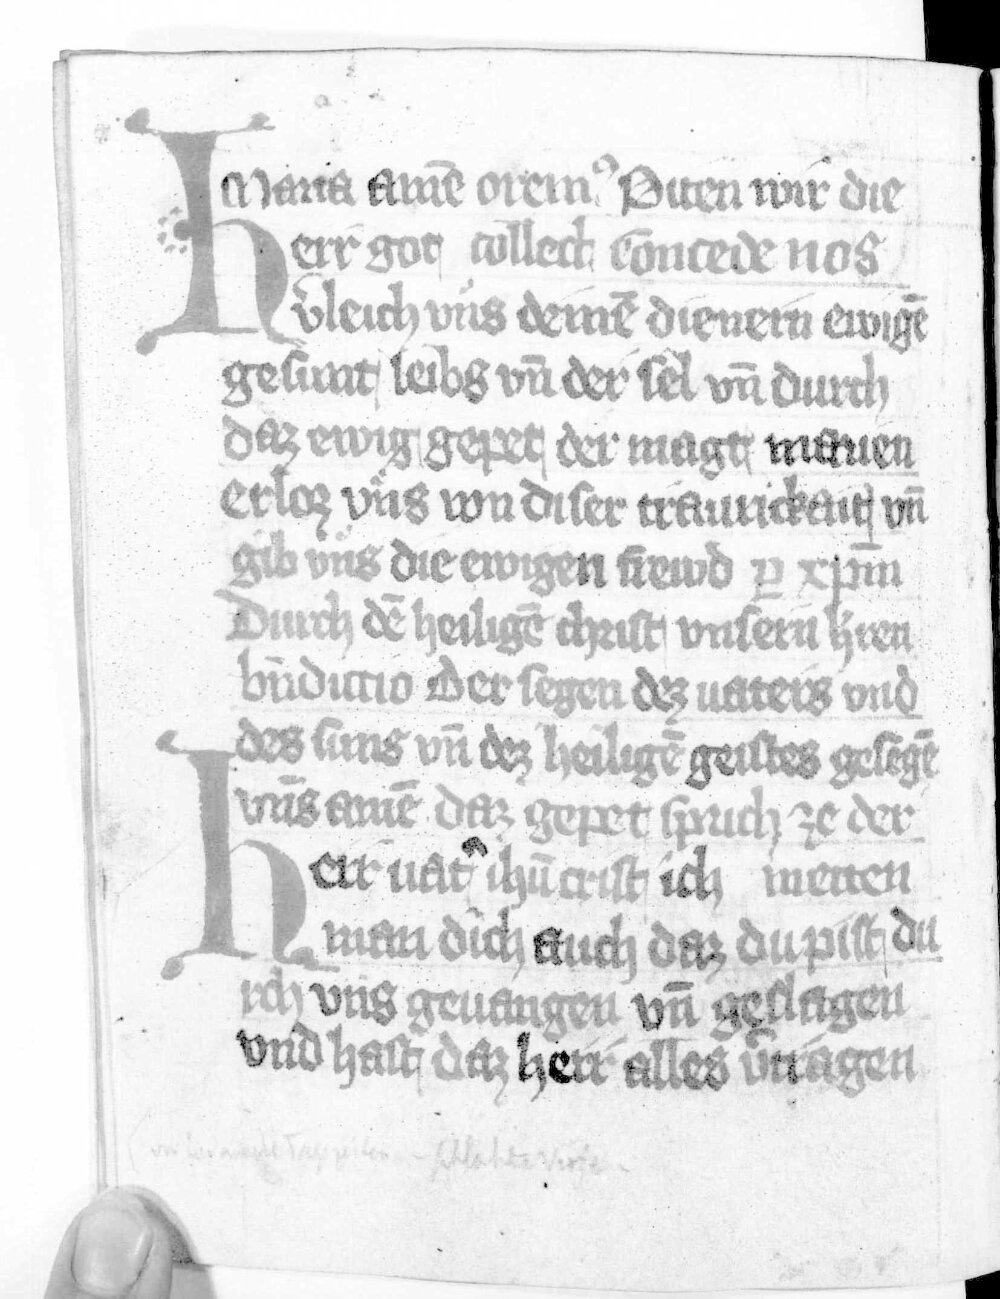 Maria amē oremꝰ Piten wir die
herr got collect Concede nos
v̊leich vns deinē dienern ewigē
gesunt leibs vn̄ der sel vn̄ durch
daz ewig gepet der magt marien
erloz vns von diser traurickait vn̄
gib vns die ewigen frewd ꝑ xp̄m
Durch dē heiligē christ vnsern h̓ren
bn̄dictio Der segen dez uaters vnd
des suns vn̄ dez heiligē geistes gesegē
vns amē daz gepet sprich ze der
herr uat̓ ihū crist ich metten
man dich auch daz du pist du
rch vns geuangen vn̄ geslagen
vnd hast daz herr alles v̓tragen